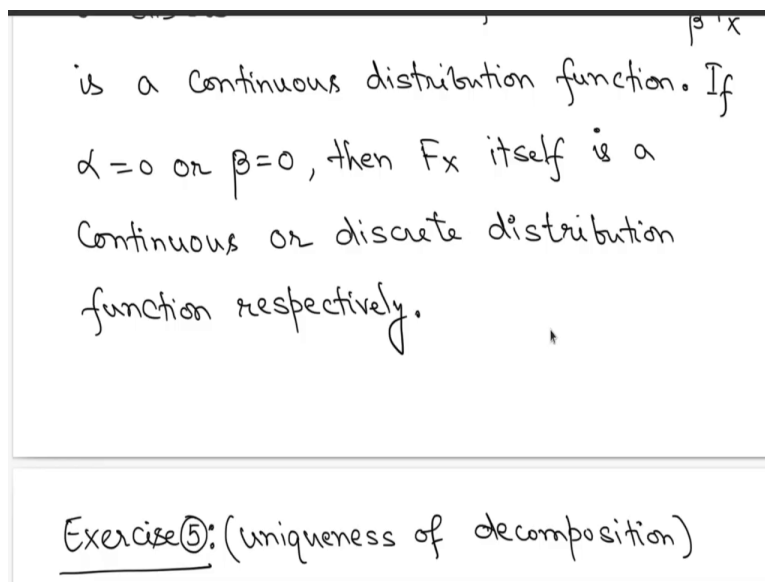 β x
is a continuous distribution function. If
α=0 or β=0, then Fx itself is a
Continuous or discrete distribution
function respectively.
Exercise⑤: (uniqueness of decomposition)